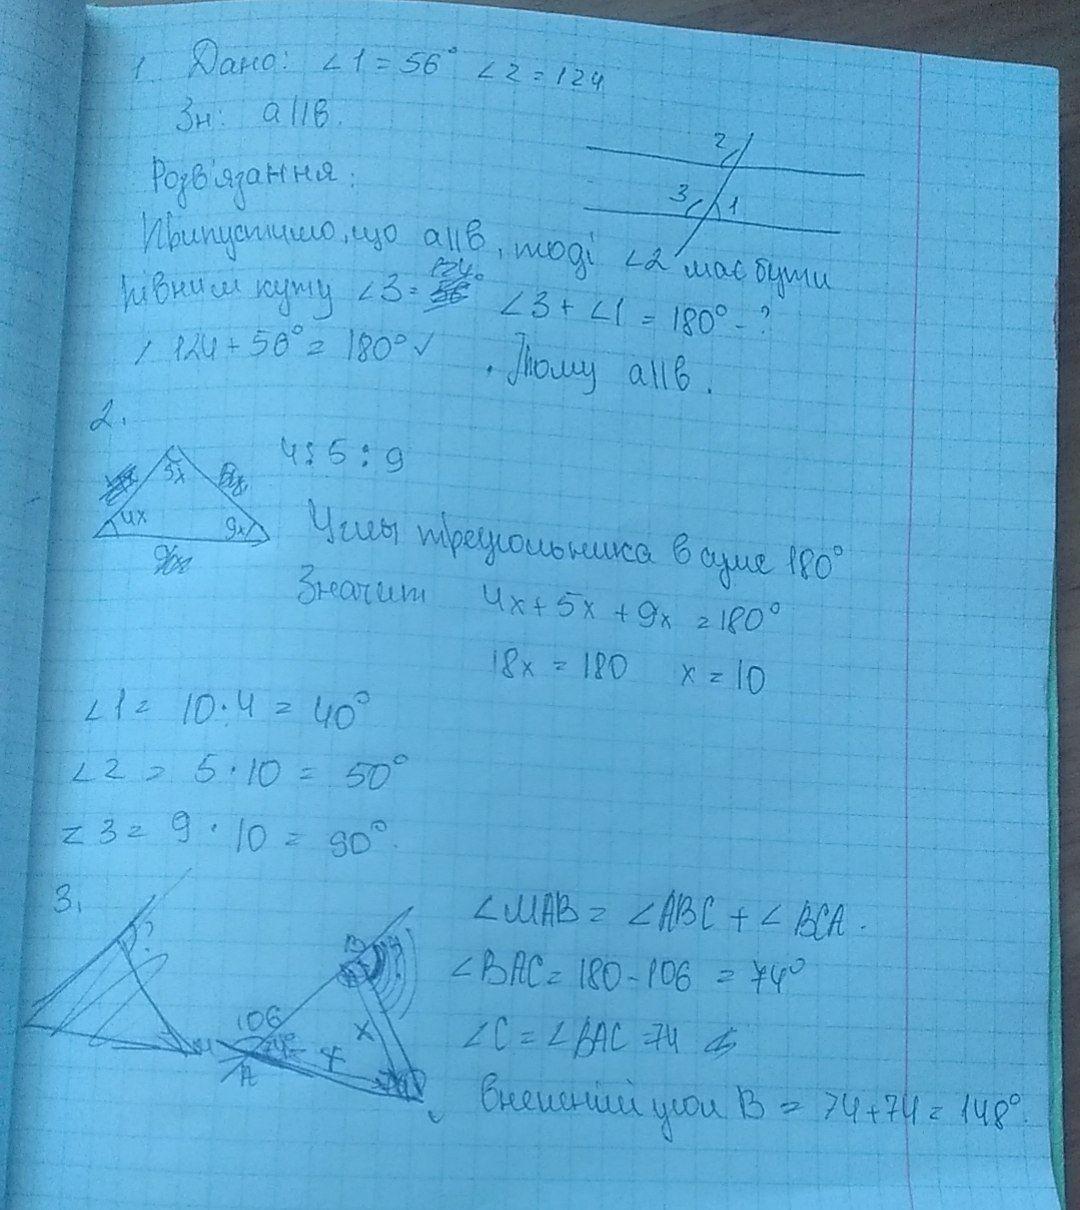 1 Дано: ∠1 = 56° ∠2 = 124
Зн: a||в.
Розв'язання:
2
3 1
Припустимо, що a||в, тоді ∠2 має бути
рівним куту ∠3 = 124° ∠3 + ∠1 = 180° - ?
124 + 56° = 180° ✓ . Тому a||в.
2.
4 : 5 : 9
5x
4x 9x
Углы треугольника в суме 180°
Значит 4x + 5x + 9x = 180°
18x = 180 x = 10
∠1 = 10 · 4 = 40°
∠2 = 5 · 10 = 50°
∠3 = 9 · 10 = 90°.
3.
?
∠MAB = ∠ABC + ∠BCA.
∠BAC = 180 - 106 = 74°
∠C = ∠BAC = 74
B
106
M x
A
внешний угол B = 74 + 74 = 148°.